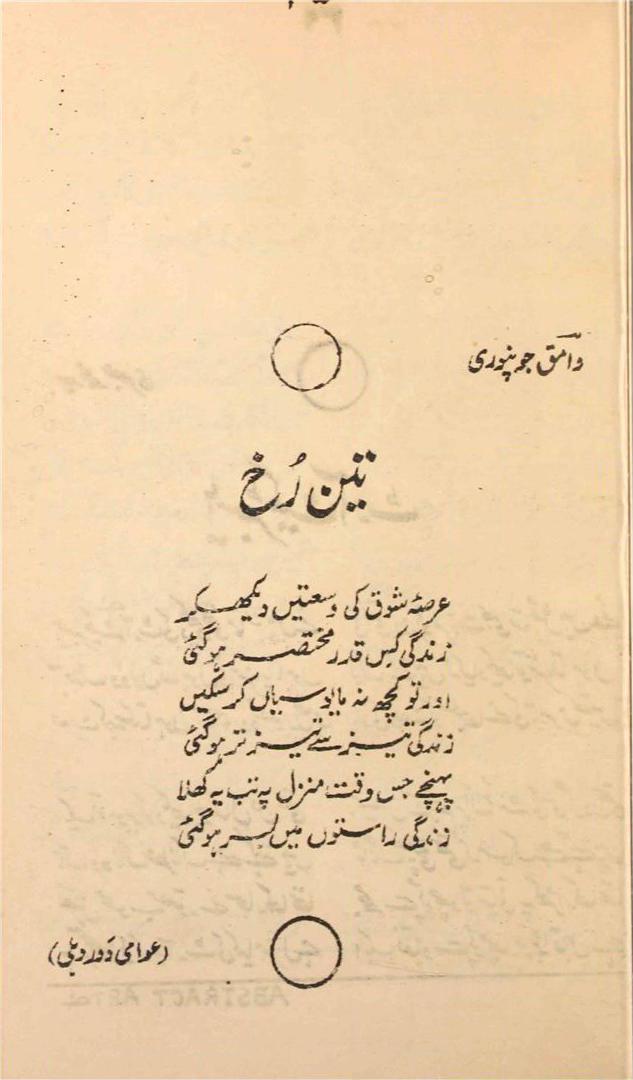 وامق جونپوری
تین رُخ
عرصۂ شوق کی وسعتیں دیکھ کر
زندگی کس قدر مختصر ہوگئی
اور تو کچھ نہ مایوسیاں کرسکیں
زندگی تیز سے تیز تر ہوگئی
پہنچے جس وقت منزل پہ تب یہ کھلا
زندگی راستوں میں بسر ہوگئی
(عوامی دور دہلی)